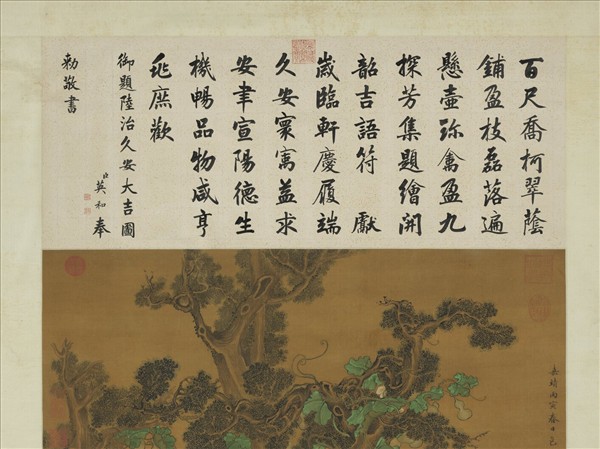 百尺喬柯翠蔭
鋪盈枝磊落遍
懸壺珎禽盈九
探芳集題繪開
韶吉語符獻
歲臨軒慶履端
久安寰寓益求
安聿宣陽德生
機暢品物咸亨
兆庶歡
御題陸治久安大吉圖
臣英和奉
勅敬書
嘉靖丙寅春日包